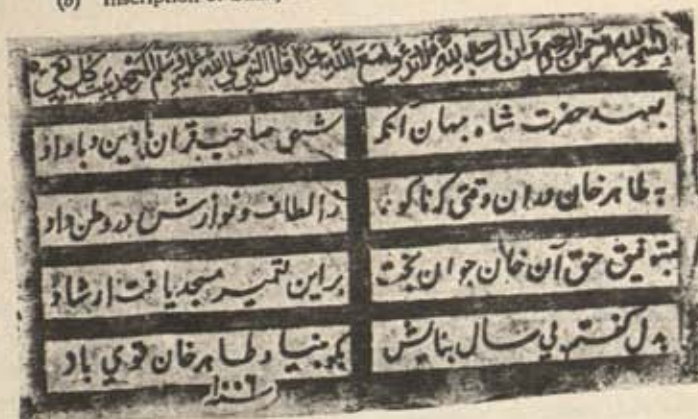 (b) Inscription of
بسم الله الرحمن الرحیم و ان المساجد لله فلا تدعوا مع الله احدا قال النبی صلی الله علیه وسلم
بعهد حضرت شاه جهان آنکه شهی صاحب قران با دین و با داد
به طاهر خان دران وقتی که ز الطاف و نوازش در وطن داد
بتوفیق حق آن خان جوان بخت بر این تعمیر مسجد یافت ارشاد
بدل گفتم پی سال بنایش بگو بنیاد طاهر خان قوی باد